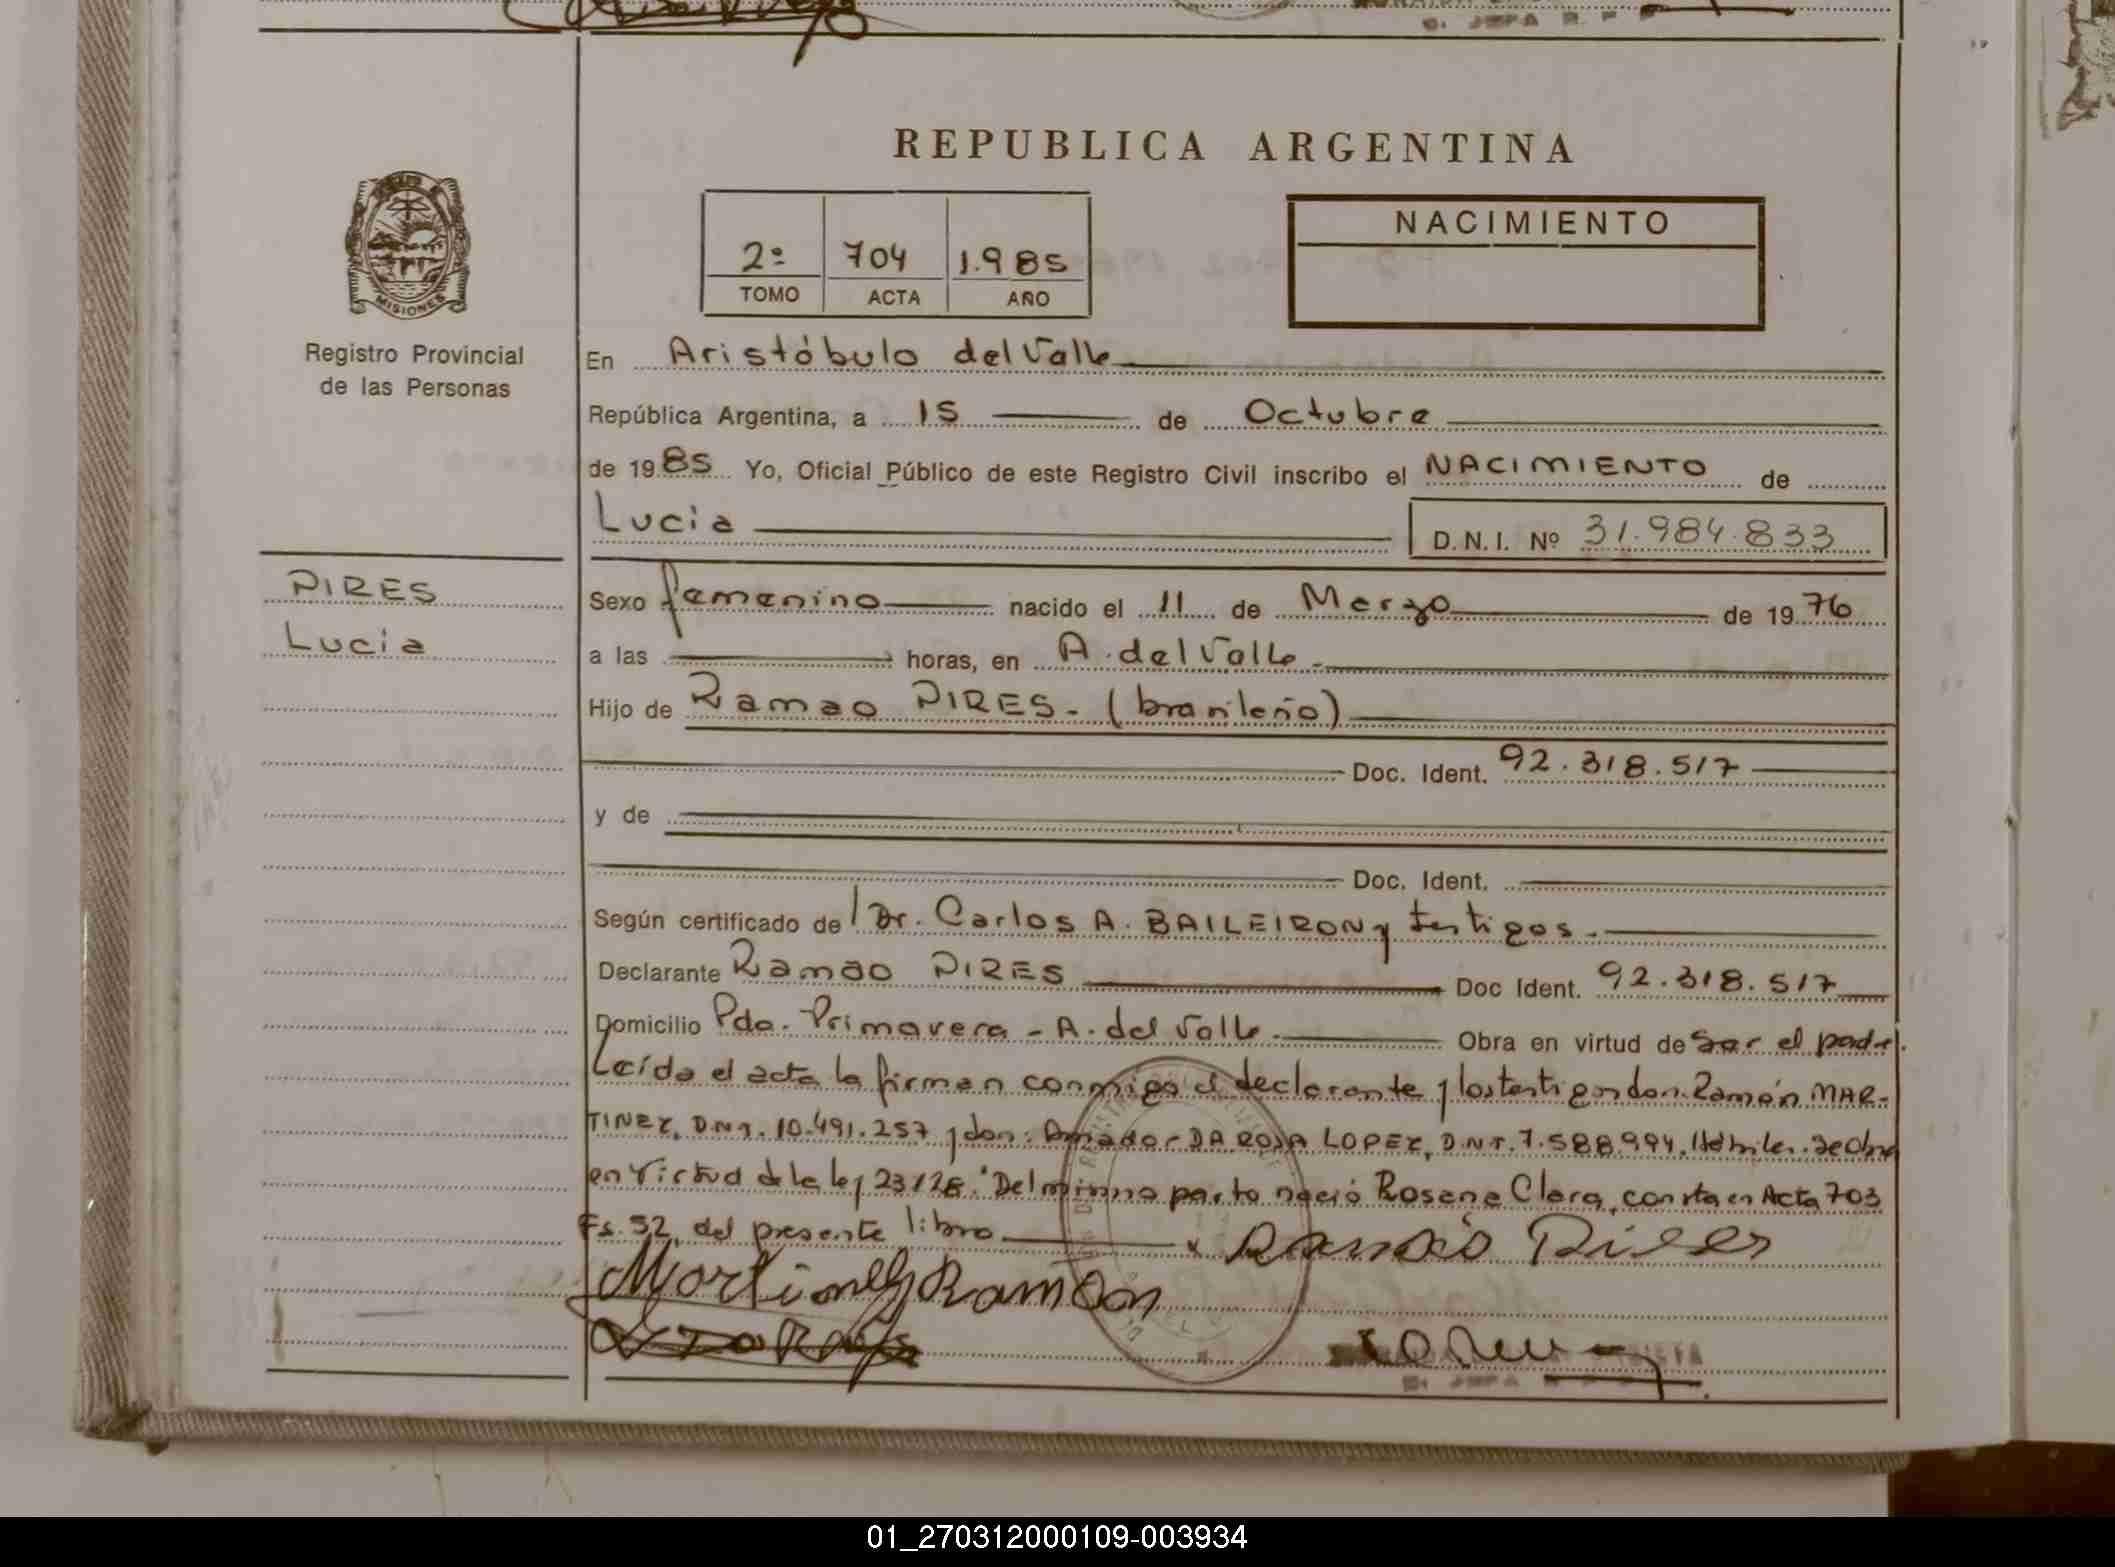 REPUBLICA ARGENTINA
2º 704 1.985
TOMO ACTA AÑO
NACIMIENTO
MISIONES
Registro Provincial
de las Personas
En Aristóbulo del Valle
República Argentina, a 15 de Octubre
de 1985 Yo, Oficial Público de este Registro Civil inscribo el NACIMIENTO de
Lucia
D.N.I. Nº 31.984.833
PIRES
Lucia
Sexo femenino nacido el 11 de Marzo de 1976
a las horas, en A. del Valle.
Hijo de Ramao PIRES - (brasileño)
Doc. Ident. 92.318.517
y de
Doc. Ident.
Según certificado de Dr. Carlos A. BAILEIRON y testigos.
Declarante Ramao PIRES Doc Ident. 92.318.517
Domicilio Pda. Primavera - A. del Valle. Obra en virtud de ser el padre.
Leída el acta la firman conmigo el declarante y los testigos don: Ramón MAR-
TINEZ, D.N.I. 10.491.257 y don: Amador DA ROSA LOPEZ, D.N.I. 7.588.994, Hábiles. Se Obra
en virtud de la ley 23128. Del mismo parto nació Rosene Clara, consta en Acta 703
Fs. 52, del presente libro
x Ramão Pires
Martinez Ramón
01_270312000109-003934